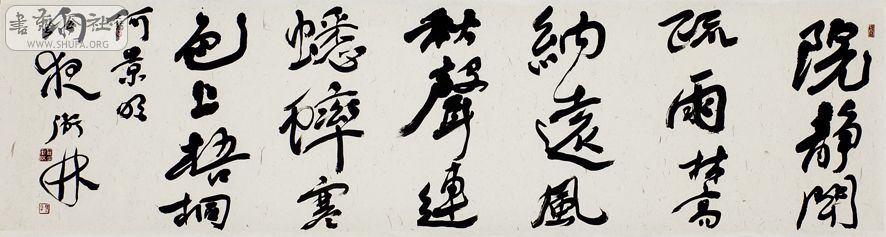 院靜聞
疏雨林高
納遠風
秋聲連
蟋蟀寒
色上梧桐
何景明
夜
WWW.SHUFA.ORG